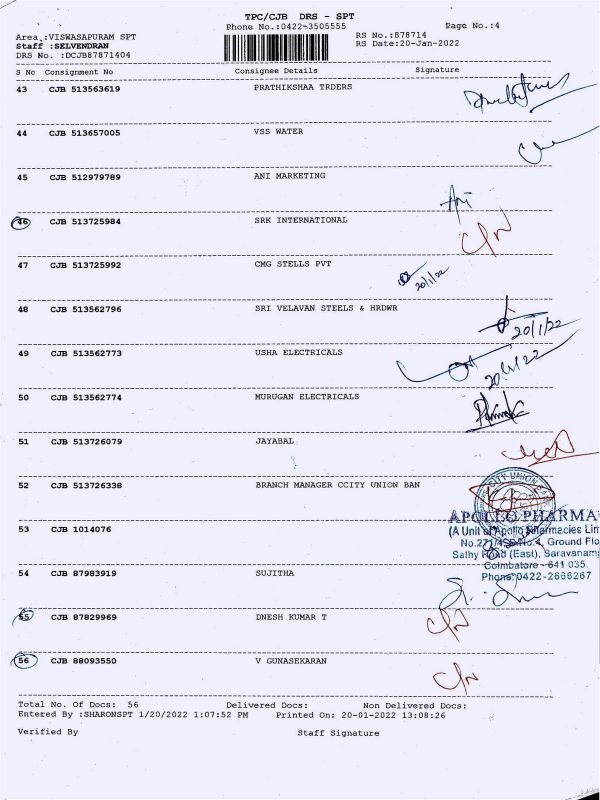 TPC/CJB DRS - SPT
Phone No.:0422-3505555 Page No.:4
Area :VISWASAPURAM SPT RS No.:878714
Staff :SELVENDRAN RS Date:20-Jan-2022
DRS No. :DCJB87871404
S No Consignment No Consignee Details Signature
43 CJB 513563619 PRATHIKSHAA TRDERS
44 CJB 513657005 VSS WATER
45 CJB 512979789 ANI MARKETING
Ani
46 CJB 513725984 SRK INTERNATIONAL
C/N
47 CJB 513725992 CMG STELLS PVT
20/1/22
48 CJB 513562796 SRI VELAVAN STEELS & HRDWR
20/1/22
49 CJB 513562773 USHA ELECTRICALS
20/1/22
50 CJB 513562774 MURUGAN ELECTRICALS
51 CJB 513726079 JAYABAL
52 CJB 513726338 BRANCH MANAGER CCITY UNION BAN
CITY UNION
APOLLO PHARMA
(A Unit of Apollo Pharmacies Lim
53 CJB 1014076
Ground Flo
Sathy Road (East), Saravanam
Coimbatore - 641 035.
54 CJB 87983919 SUJITHA
Phone:0422-2666267
55 CJB 87829969 DNESH KUMAR T
C/N
56 CJB 88093550 V GUNASEKARAN
C/N
Total No. Of Docs: 56 Delivered Docs: Non Delivered Docs:
Entered By :SHARONSPT 1/20/2022 1:07:52 PM Printed On: 20-01-2022 13:08:26
Verified By Staff Signature